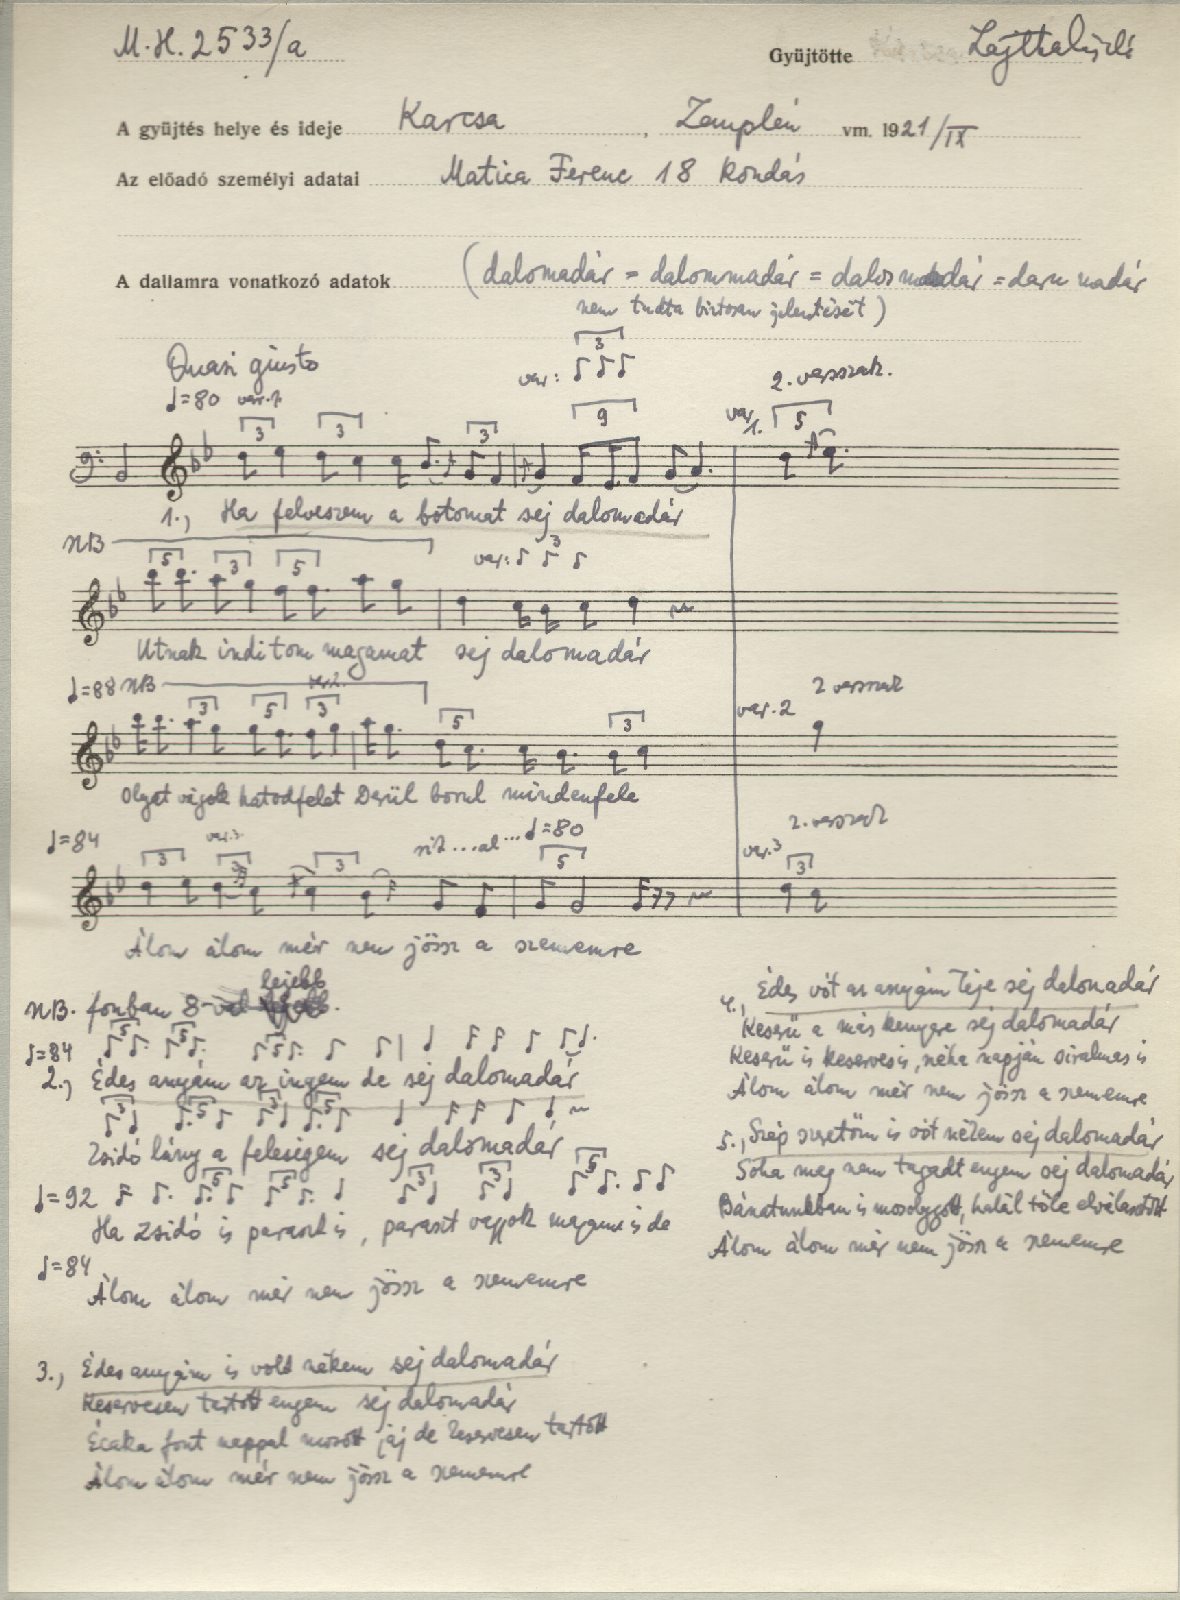 M.H. 2533/a
Gyüjtötte Lajtha László
A gyüjtés helye és ideje Karcsa, Zemplén vm. 1921/IX
Az előadó személyi adatai Matica Ferenc 18 kondás
A dallamra vonatkozó adatok (dalomadár = dalommadár = dalos madár = daru madár
nem tudta biztosan jelentését)
Quasi giusto
var: 3
2. versszak.
♩=80 var. 1
var. 1.
3 3 3 9 5
1., Ha felveszem a botomat sej dalomadár
NB
5 3 5
var: 3
Utnak inditom magamat sej dalomadár
♩=88 NB var. 2.
2 versszak
var. 2
3 5 3 5 3
Olyat vágok hatodfelet Derül borul mindenfele
♩=84 var. 3.
rit...al...♩=80
2. versszak
var. 3
3 3 3 5 3
Álom álom mér nem jössz a szememre
NB. fonban 8-val lejebb.
♩=84 5 5 5
2., Édes anyám az ingem de sej dalomadár
3 5 3 5
Zsidó lány a feleségem sej dalomadár
♩=92 5 5 3 3 5
Ha zsidó is paraszt is, paraszt vagyok magam is de
♩=84
Álom álom mér nem jössz a szememre
3., Édes anyám is volt nékem sej dalomadár
Keservesen tartott engem sej dalomadár
Écaka font nappal mosott jaj de keservesen tartott
Álom álom mér nem jössz a szememre
4., Édes vót az anyám teje sej dalomadár
Keserü a más kenyere sej dalomadár
Keserü is keserves is, néha napján siralmas is
Álom álom mér nem jössz a szememre
5., Szép szeretőm is vót nékem sej dalomadár
Soha meg nem tagadt engem sej dalomadár
Bánatunkban is mosolygott, halál tőle elválasztott
Álom álom mér nem jössz a szememre